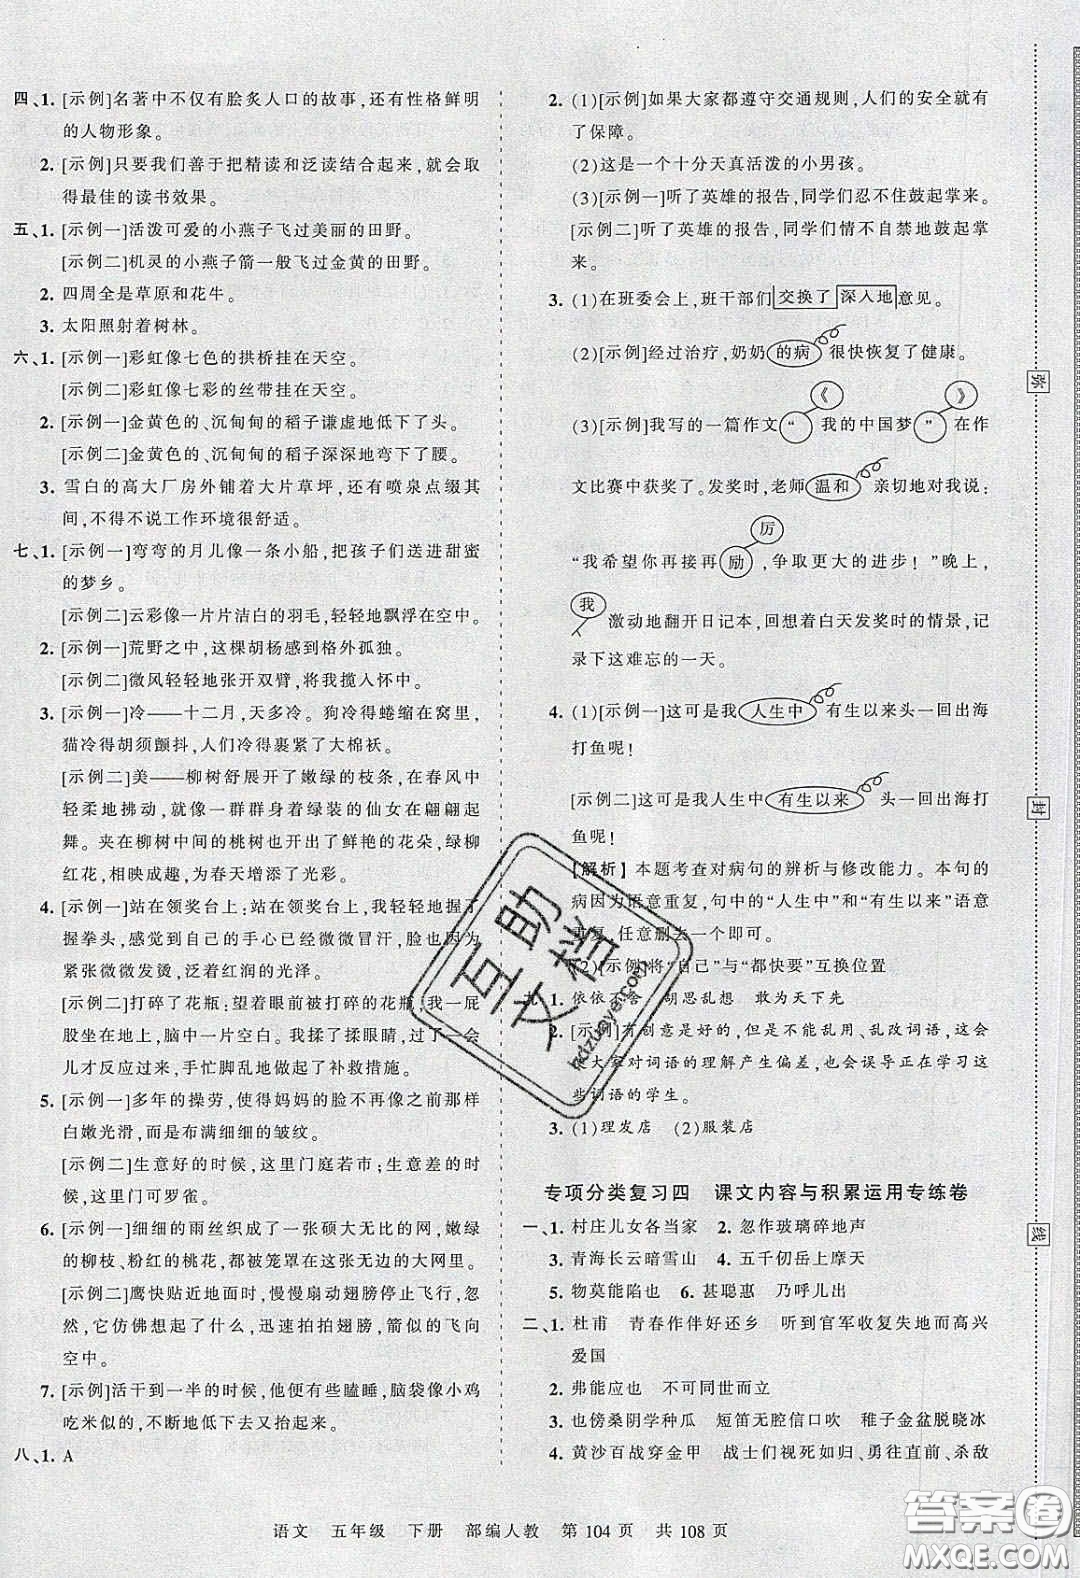 四、1. [示例]名著中不仅有脍炙人口的故事,还有性格鲜明
的人物形象。
2. [示例]只要我们善于把精读和泛读结合起来,就会取
得最佳的读书效果。
五、1. [示例一]活泼可爱的小燕子飞过美丽的田野。
[示例二]机灵的小燕子箭一般飞过金黄的田野。
2. 四周全是草原和花牛。
3. 太阳照射着树林。
六、1. [示例一]彩虹像七色的拱桥挂在天空。
[示例二]彩虹像七彩的丝带挂在天空。
2. [示例一]金黄色的、沉甸甸的稻子谦虚地低下了头。
[示例二]金黄色的、沉甸甸的稻子深深地弯下了腰。
3. 雪白的高大厂房外铺着大片草坪,还有喷泉点缀其
间,不得不说工作环境很舒适。
七、1. [示例一]弯弯的月儿像一条小船,把孩子们送进甜蜜
的梦乡。
[示例二]云彩像一片片洁白的羽毛,轻轻地飘浮在空中。
2. [示例一]荒野之中,这棵胡杨感到格外孤独。
[示例二]微风轻轻地张开双臂,将我揽入怀中。
3. [示例一]冷——十二月,天多冷。狗冷得蜷缩在窝里,
猫冷得胡须颤抖,人们冷得裹紧了大棉袄。
[示例二]美——柳树舒展开了嫩绿的枝条,在春风中
轻柔地拂动,就像一群群身着绿装的仙女在翩翩起
舞。夹在柳树中间的桃树也开出了鲜艳的花朵,绿柳
红花,相映成趣,为春天增添了光彩。
4. [示例一]站在领奖台上:站在领奖台上,我轻轻地握了
握拳头,感觉到自己的手心已经微微冒汗,脸也因为
紧张微微发烫,泛着红润的光泽。
[示例二]打碎了花瓶:望着眼前被打碎的花瓶,我一屁
股坐在地上,脑中一片空白。我揉了揉眼睛,过了一会
儿才反应过来,手忙脚乱地做着补救措施。
5. [示例一]多年的操劳,使得妈妈的脸不再像之前那般
白嫩光滑,而是布满细细的皱纹。
[示例二]生意好的时候,这里门庭若市;生意差的时
候,这里门可罗雀。
6. [示例一]细细的雨丝织成了一张硕大无比的网,嫩绿
的柳枝、粉红的桃花,都被笼罩在这张无边无际的网中。
[示例二]鹰快贴近地面时,慢慢扇动翅膀停止飞行,忽
然,它仿佛想起了什么,迅速拍拍翅膀,箭似的飞向
空中。
7. [示例]活干到一半的时候,他就有些瞌睡,脑袋像小鸡
吃米似的,不断地低下去又抬起来。
八、1. A
2. (1)[示例]如果大家都遵守交通规则,人们的安全就有
了保障。
(2)这是一个十分天真活泼的小男孩。
(3)[示例一]听了英雄的报告,同学们忍不住鼓起掌来。
[示例二]听了英雄的报告,同学们情不自禁地鼓起掌
来。
3. (1)在班委会上,班干部们交换了深入地意见。
(2)[示例]经过治疗,奶奶的病很快恢复了健康。
《 》
(3)[示例]我写的一篇作文“我的中国梦”在作
文比赛中获奖了。发奖时,老师温和亲切地对我说:
厉
“我希望你再接再励,争取更大的进步!”晚上,
我激动地翻开日记本,回想着白天发奖时的情景,记
录下这难忘的一天。
4. (1)[示例一]这可是我人生中有生以来头一回出海
打鱼呢!
[示例二]这可是我人生中有生以来头一回出海打
鱼呢!
[解析] 本题考查对病句的辨析与修改能力。本句的
病因为语意重复,句中的“人生中”和“有生以来”语意
重复,任意删去一个即可。
(2)[示例]将“自己”与“都快要”互换位置
九、1. 依依不舍 胡思乱想 敢为天下先
2. [示例]有创意是好的,但是不能乱用、乱改词语,这会
使大家对词语的理解产生偏差,也会误导正在学习这
些词语的学生。
3. (1)理发店 (2)服装店
专项分类复习四 课文内容与积累运用专练卷
一、1. 村庄儿女各当家 2. 忽作玻璃碎地声
3. 青海长云暗雪山 4. 五千仞岳上摩天
5. 物莫能陷也 6. 甚聪惠 乃呼儿出
二、1. 杜甫 青春作伴好还乡 听到官军收复失地而高兴
爱国
2. 弗能应也 不可同世而立
3. 也傍桑阴学种瓜 短笛无腔信口吹 稚子金盆脱晓冰
4. 黄沙百战穿金甲 战士们视死如归、勇往直前、杀敌
语文 五年级 下册 部编人教 第104页 共108页
弥
封
线
互助文档
hdzuoye.com
答案圈
MXQE.COM